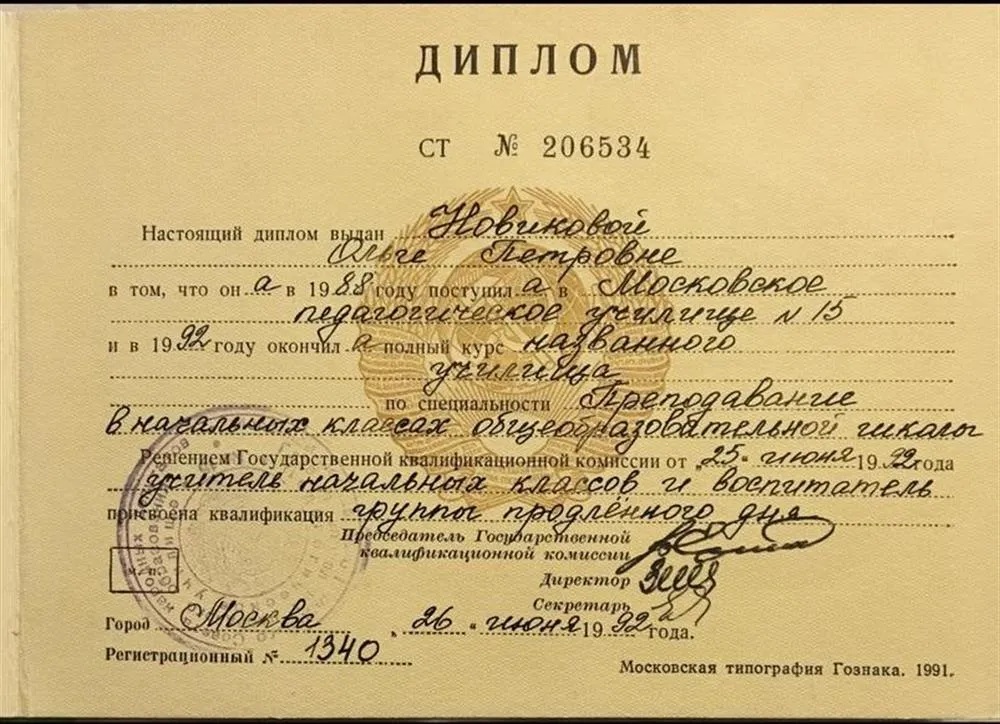 ДИПЛОМ
СТ № 206534
Настоящий диплом выдан Новиковой
Ольге Петровне
в том, что он а в 1988 году поступил а в Московское
педагогическое училище № 15
и в 1992 году окончил а полный курс названного
училища
по специальности Преподавание
в начальных классах общеобразовательной школы
Решением Государственной квалификационной комиссии от „25“ июня 1992 года
учитель начальных классов и воспитатель
присвоена квалификация группы продлённого дня
Председатель Государственной
квалификационной комиссии
Директор
Секретарь
М. П.
Город Москва, „26“ июня 1992 года.
Регистрационный № 1340
Московская типография Гознака. 1991.